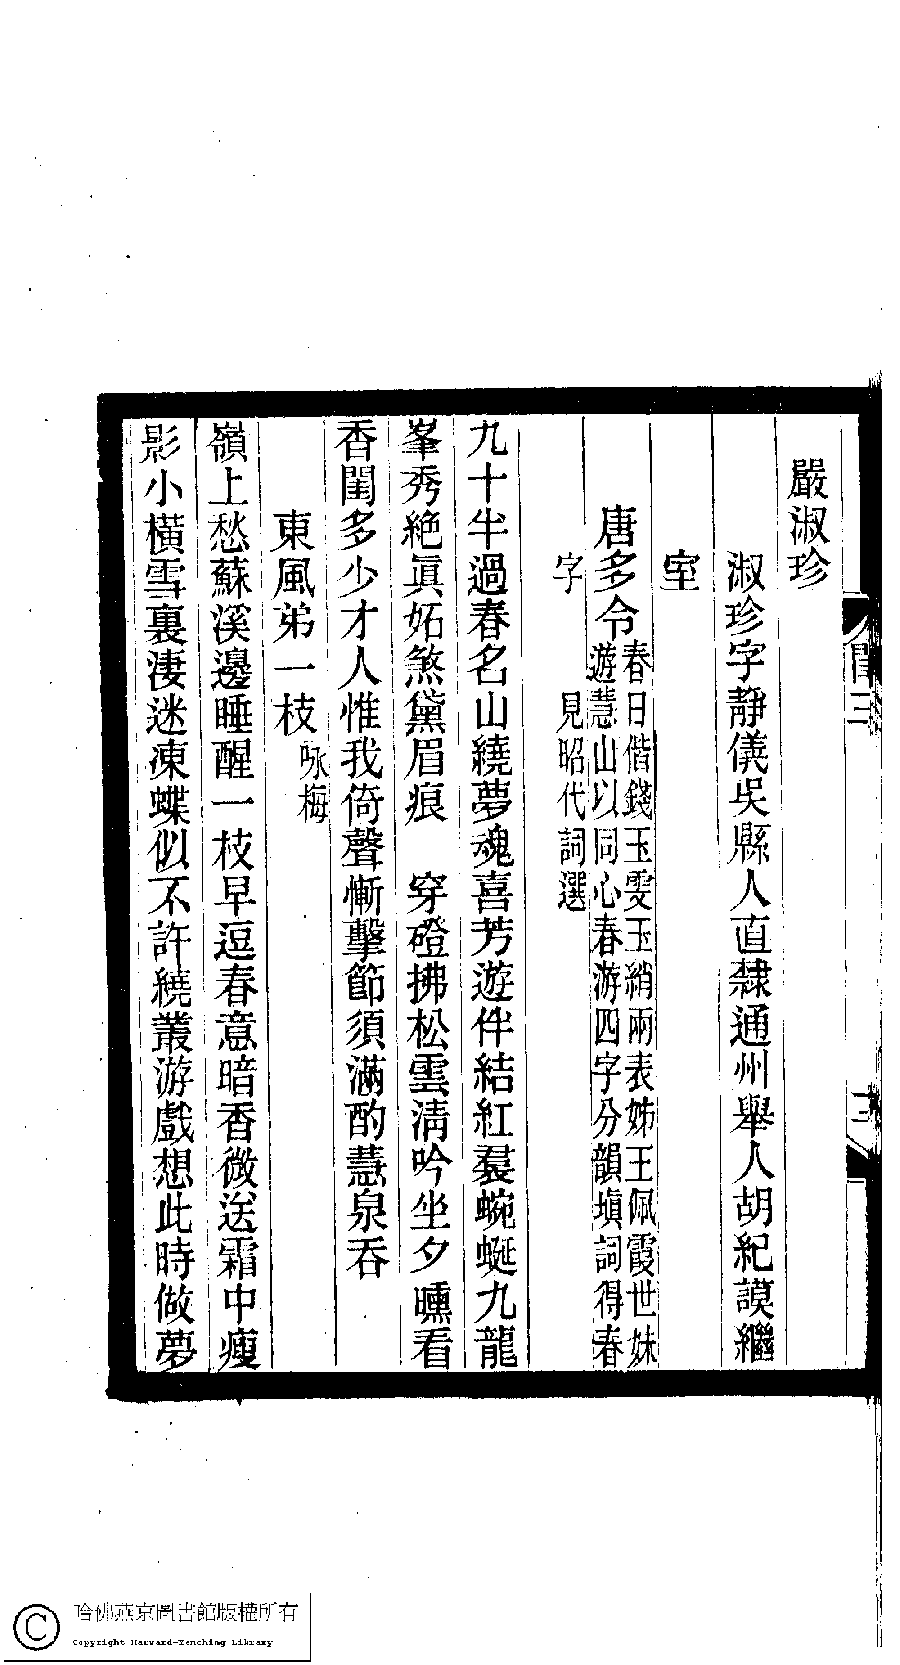 嚴淑珍
淑珍字靜儀吳縣人直隸通州舉人胡紀謨繼
室
唐多令春日偕錢玉雯玉綃兩表姊王佩霞世妹
遊慧山以同心春游四字分韻塡詞得春
字　見昭代詞選
九十半過春名山繞夢魂喜芳遊伴結紅裠蜿蜒九龍
峯秀絕眞妬煞黛眉痕　穿磴拂松雲淸吟坐夕曛看
香閨多少才人惟我倚聲慚擊節須滿酌慧泉吞
東風弟一枝咏梅
嶺上愁蘇溪邊睡醒一枝早逗春意暗香微送霜中瘦
影小橫雪裏淒迷凍蝶似不許繞叢游戲想此時做夢
閨三
三
哈佛燕京圖書館版權所有
Copyright Harvard-Yenching Library